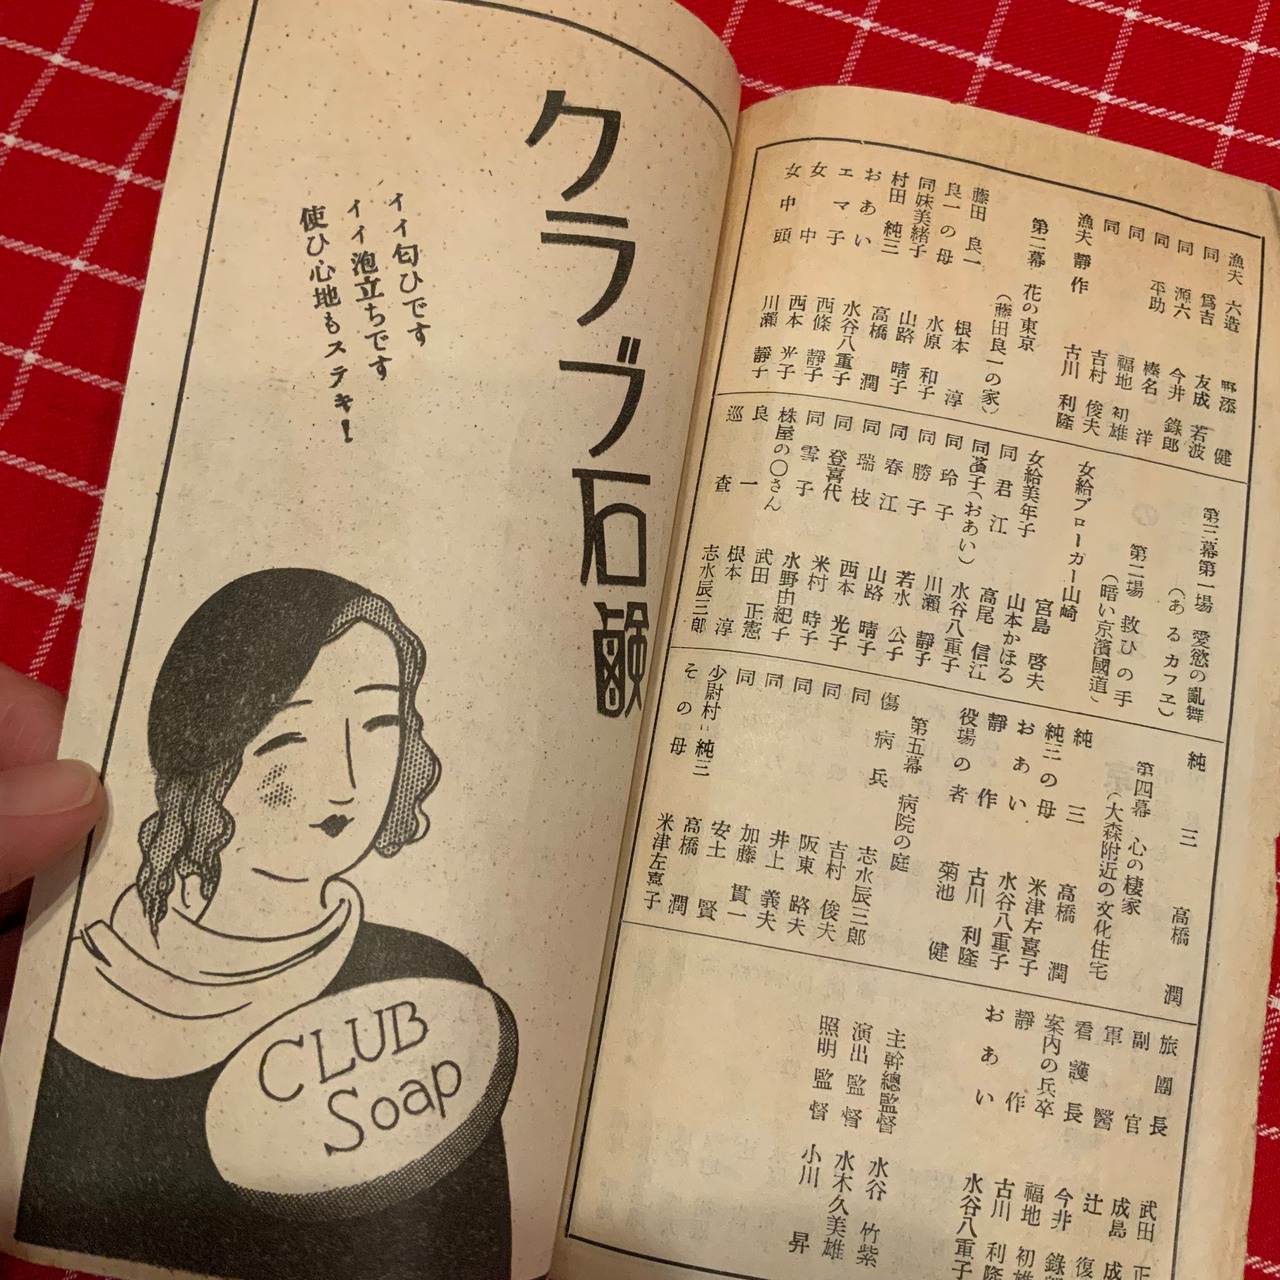 漁夫 六造 野添 健
同 爲吉 友成 若波
同 源六 今井 錄郎
同 平助 榛名 洋
同 福地 初雄
同 吉村 俊夫
漁夫 靜作 古川 利隆
第二幕 花の東京
(藤田良一の家)
藤田 良一 根本 淳
良一の母 水原 和子
同妹美緒子 山路 晴子
村田 純三 高橋 潤
おあい 水谷八重子
エマ子 西條 靜子
女中 西本 光子
女中頭 川瀨 靜子
第三幕第一場 愛慾の亂舞
(あるカフヱ)
第二場 救ひの手
(暗い京濱國道)
女給ブローガー山崎 宮島 啓夫
女給美年子 山本かほる
同 君江 高尾 信江
同 濱子(おあい) 水谷八重子
同 玲子 川瀨 靜子
同 勝子 若水 公子
同 春江 山路 晴子
同 瑞枝 西本 光子
同 登喜代 米村 時子
同 雪子 水野由紀子
株屋の〇さん 武田 正憲
良一 根本 淳
巡査 志水辰三郎
純三 高橋 潤
第四幕 心の棲家
(大森附近の文化住宅
純三 高橋 潤
純三の母 米津左喜子
おあい 水谷八重子
靜作 古川 利隆
役場の者 菊池 健
第五幕 病院の庭
傷病兵 志水辰三郎
同 吉村 俊夫
同 阪東 路夫
同 井上 義夫
同 加藤 貫一
同 安土 賢
少尉村 純三 高橋 潤
その母 米津左喜子
旅團長 武田 正
副官 成島
軍醫 辻 復
看護長 今井 錄
案内の兵卒 福地 初雄
靜作 古川 利
おあい 水谷八重子
主幹總監督 水谷 竹紫
演出監督 水木久美雄
照明監督 小川 昇
クラブ石鹸
イイ匂ひです
イイ泡立ちです
使ひ心地もステキ!
CLUB
Soap